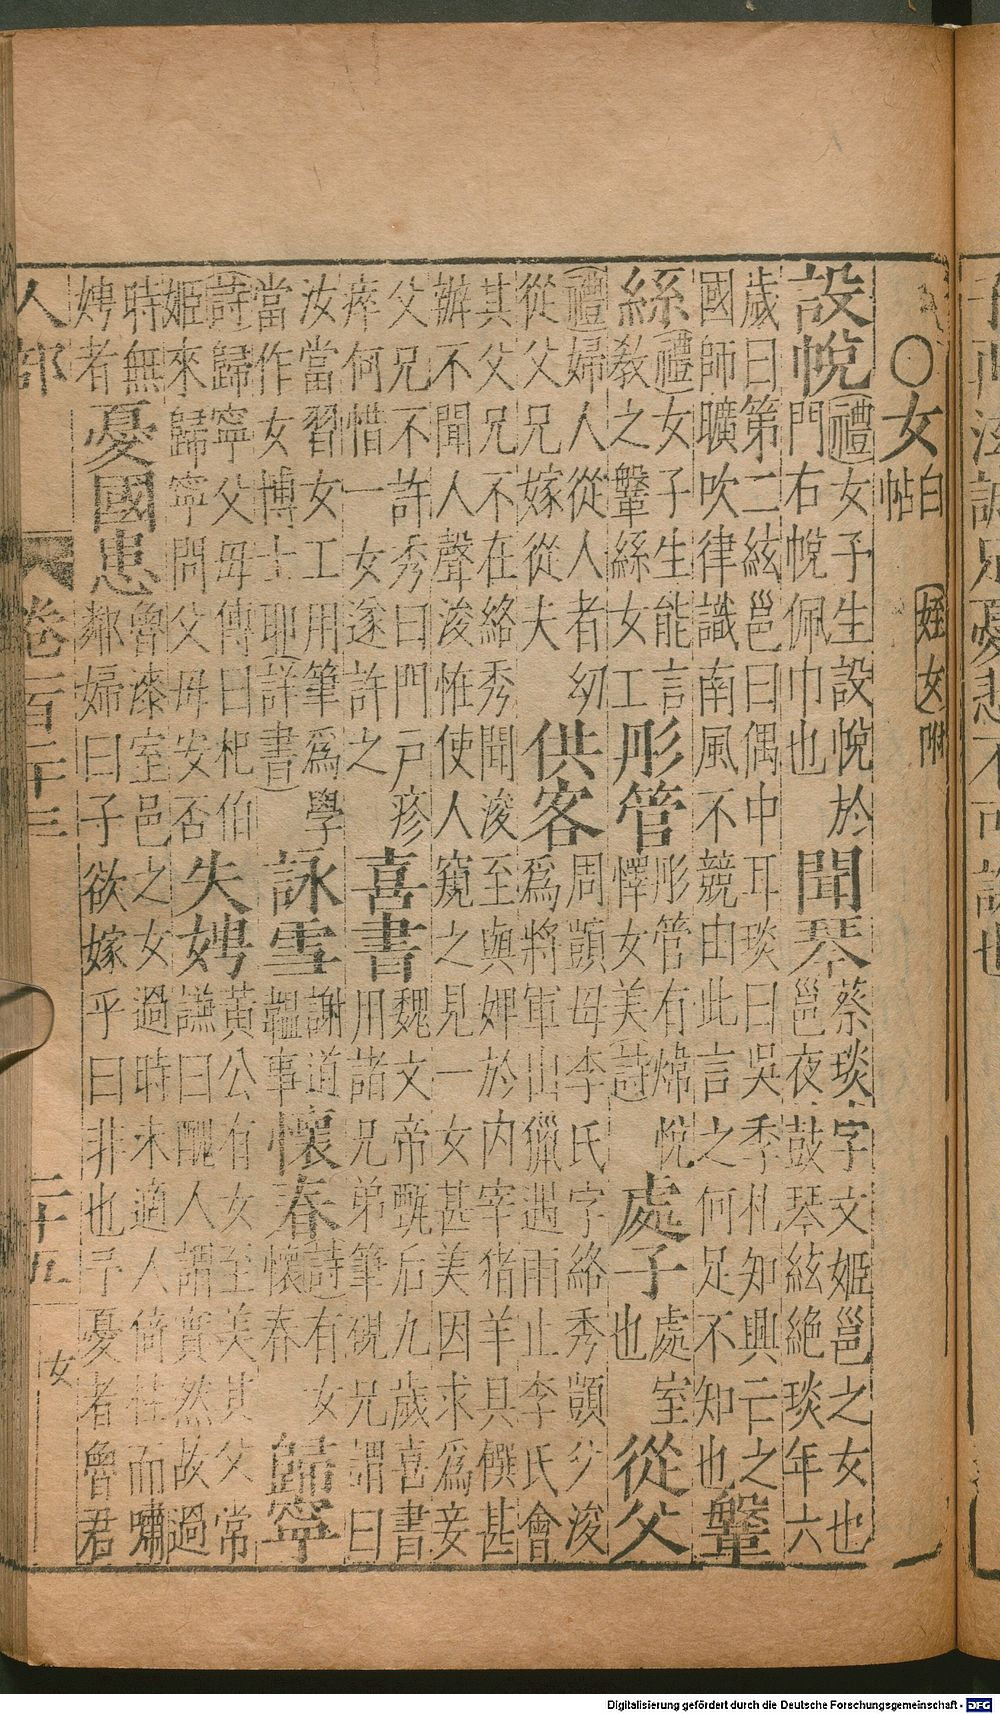 ○女 白帖 姪女附
設帨 禮女子生設帨於門右帨佩巾也 聞琴 蔡琰字文姬邕之女也邕夜鼓琴絃絕琰年六
歲曰第二絃邕曰偶中耳琰曰吳季札知興亡之國師曠吹律識南風不競由此言之何足不知也 鞶
絲 禮女子生能言教之鞶絲女工 彤管 彤管有煒悅懌女美詩 處子 處室也 從父
禮婦人從人者幼從父兄嫁從夫 供客 周顗母李氏字絡秀顗父浚爲將軍出獵遇雨止李氏會
其父兄不在絡秀聞浚至與婢於內宰猪羊具饌甚辦不聞人聲浚怪使人窺之見一女甚美因求爲妾
父兄不許秀曰門戶殄瘁何惜一女遂許之 喜書 魏文帝甄后九歲喜書用諸兄弟筆硯兄謂曰
汝當習女工用筆爲學當作女博士耶詳書 詠雪 謝道韞事 懷春 詩有女懷春 歸寧
詩歸寧父母傳曰杞伯姬來歸寧問父母安否 失娉 黃公有女至美其父常謙曰醜人謂實然故過
時無娉者 憂國患 魯漆室邑之女過時未適人倚柱而嘯鄰婦曰子欲嫁乎曰非也予憂者魯君
人部 卷一百二十三 二十五 女
Digitalisierung gefördert durch die Deutsche Forschungsgemeinschaft - DFG